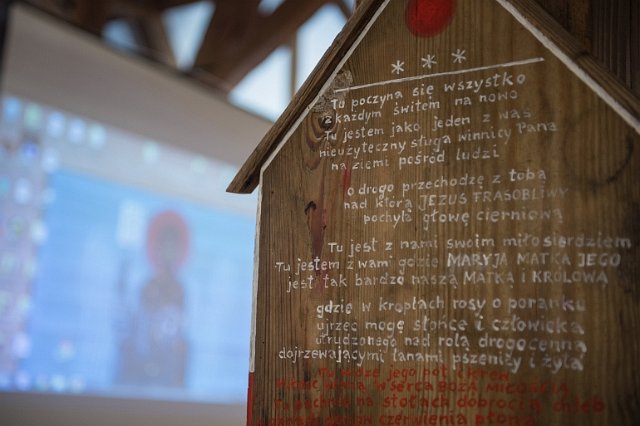 * * *
Tu poczyna się wszystko
z każdym świtem na nowo
Tu jestem jako jeden z was
nieużyteczny sługa winnicy Pana
na ziemi pośród ludzi
o drogo przechodzę z tobą
nad którą JEZUS FRASOBLIWY
pochyla głowę cierniową
Tu jest z nami swoim miłosierdziem
Tu jestem z wami gdzie MARYJA MATKA JEGO
jest tak bardzo naszą MATKĄ i KRÓLOWĄ
gdzie w kroplach rosy o poranku
ujrzeć mogę słońce i człowieka
utrudzonego nad rolą drogocenną
dojrzewającymi łanami pszenicy i żyta
Tu jego pot i krew
w serca BOŻA MIŁOŚCIĄ
na stołach dobrocią chleb
czerwienią